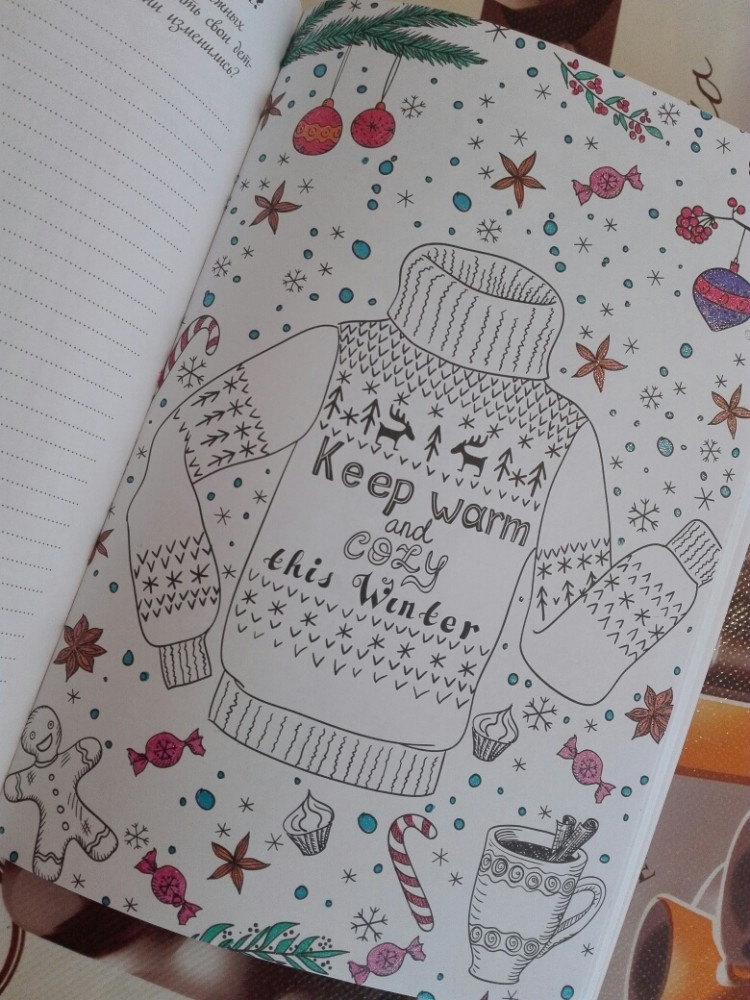 ть свои дет-
изменились?
Keep warm
and
COZY
this Winter